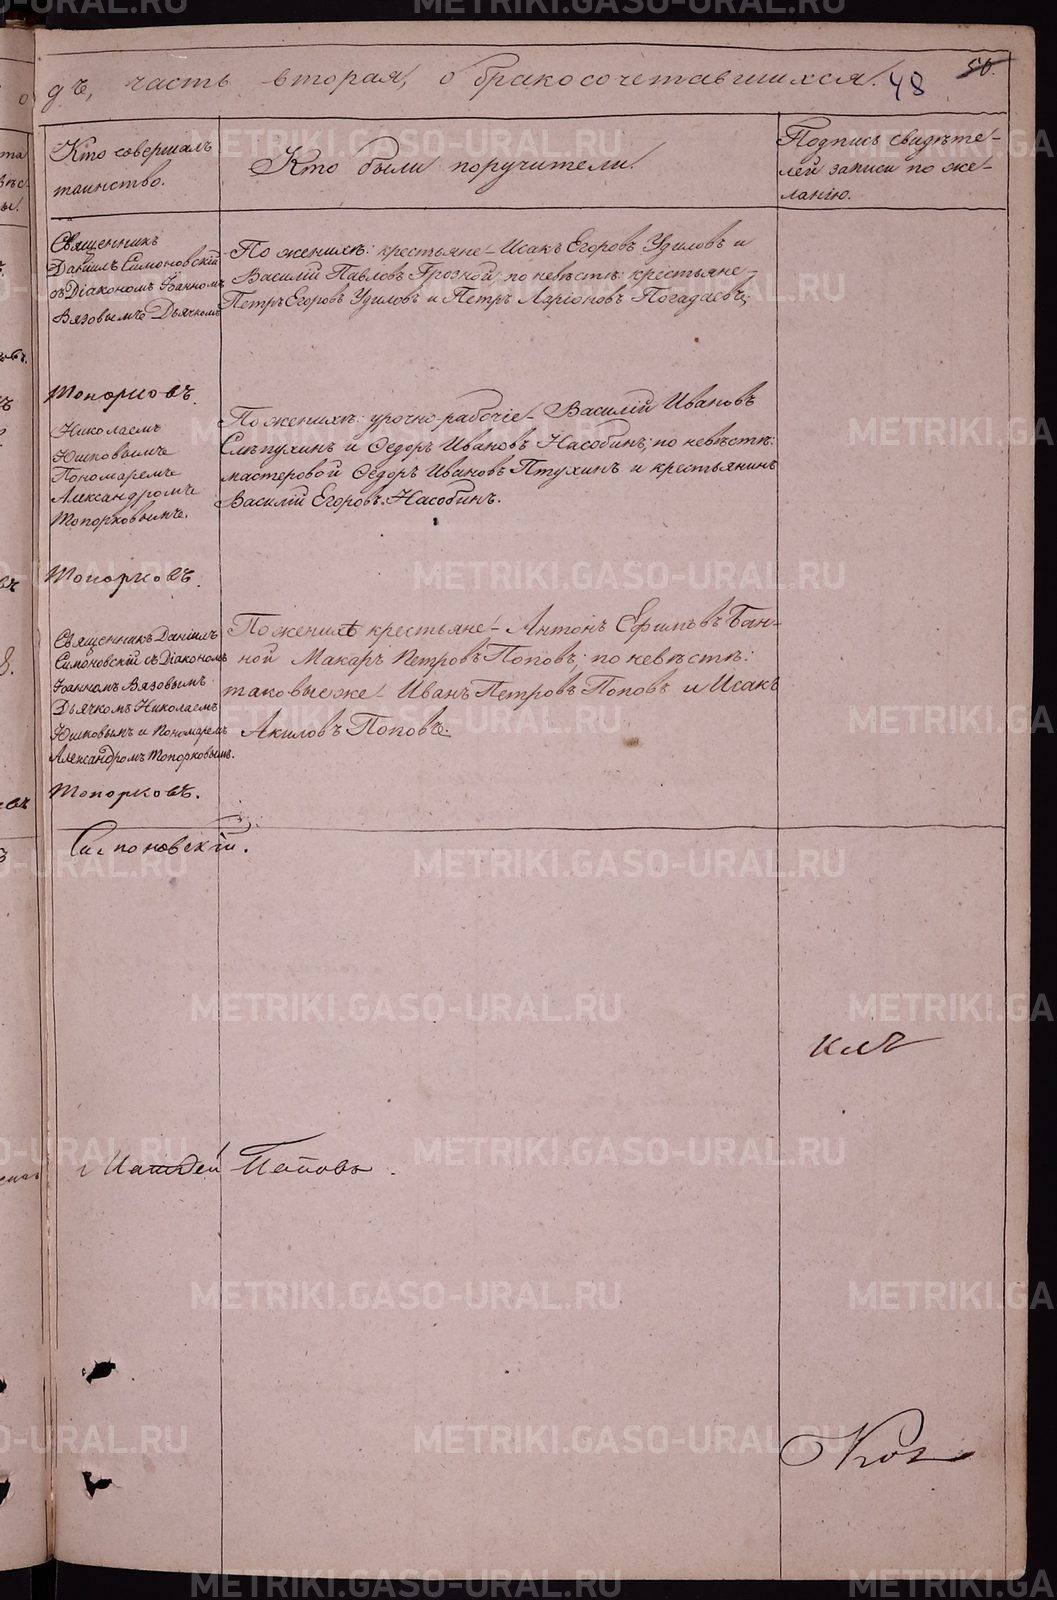 дъ, часть вторая, о бракосочетавшихся. 48 50.
Кто совершалъ
таинство.
Кто были поручители.
Подпись свидѣте-
лей записи по же-
ланію.
Священникъ
Даніилъ Симоновскій
съ Діакономъ Іоанномъ
Вязовымъ Дьячкомъ
По женихѣ: крестьяне Исакъ Егоровъ Удиловъ и
Василій Павловъ Грозной; по невѣстѣ: крестьяне
Петръ Егоровъ Удиловъ и Петръ Ларіоновъ Погадаевъ;
Топорковъ.
Николаемъ
Юшковымъ
Пономаремъ
Александромъ
Топорковымъ.
По женихѣ: урочно-рабочіе Василій Ивановъ
Слѣпухинъ и Ѳедоръ Ивановъ Насобинъ; по невѣстѣ:
мастеровой Ѳедоръ Ивановъ Птухинъ и крестьянинъ
Василій Егоровъ Насобинъ.
Топорковъ.
Священникъ Даніилъ
Симоновскій съ Діакономъ
Іоанномъ Вязовымъ
Дьячкомъ Николаемъ
Юшковымъ и Пономаремъ
Александромъ Топорковымъ.
По женихѣ крестьяне Антонъ Ефимовъ Бан-
ной Макаръ Петровъ Поповъ; по невѣстѣ:
таковые же Иванъ Петровъ Поповъ и Исакъ
Акиловъ Поповъ.
Топорковъ.
Симоновскій.
Поповъ.
METRIKI.GASO-URAL.RU